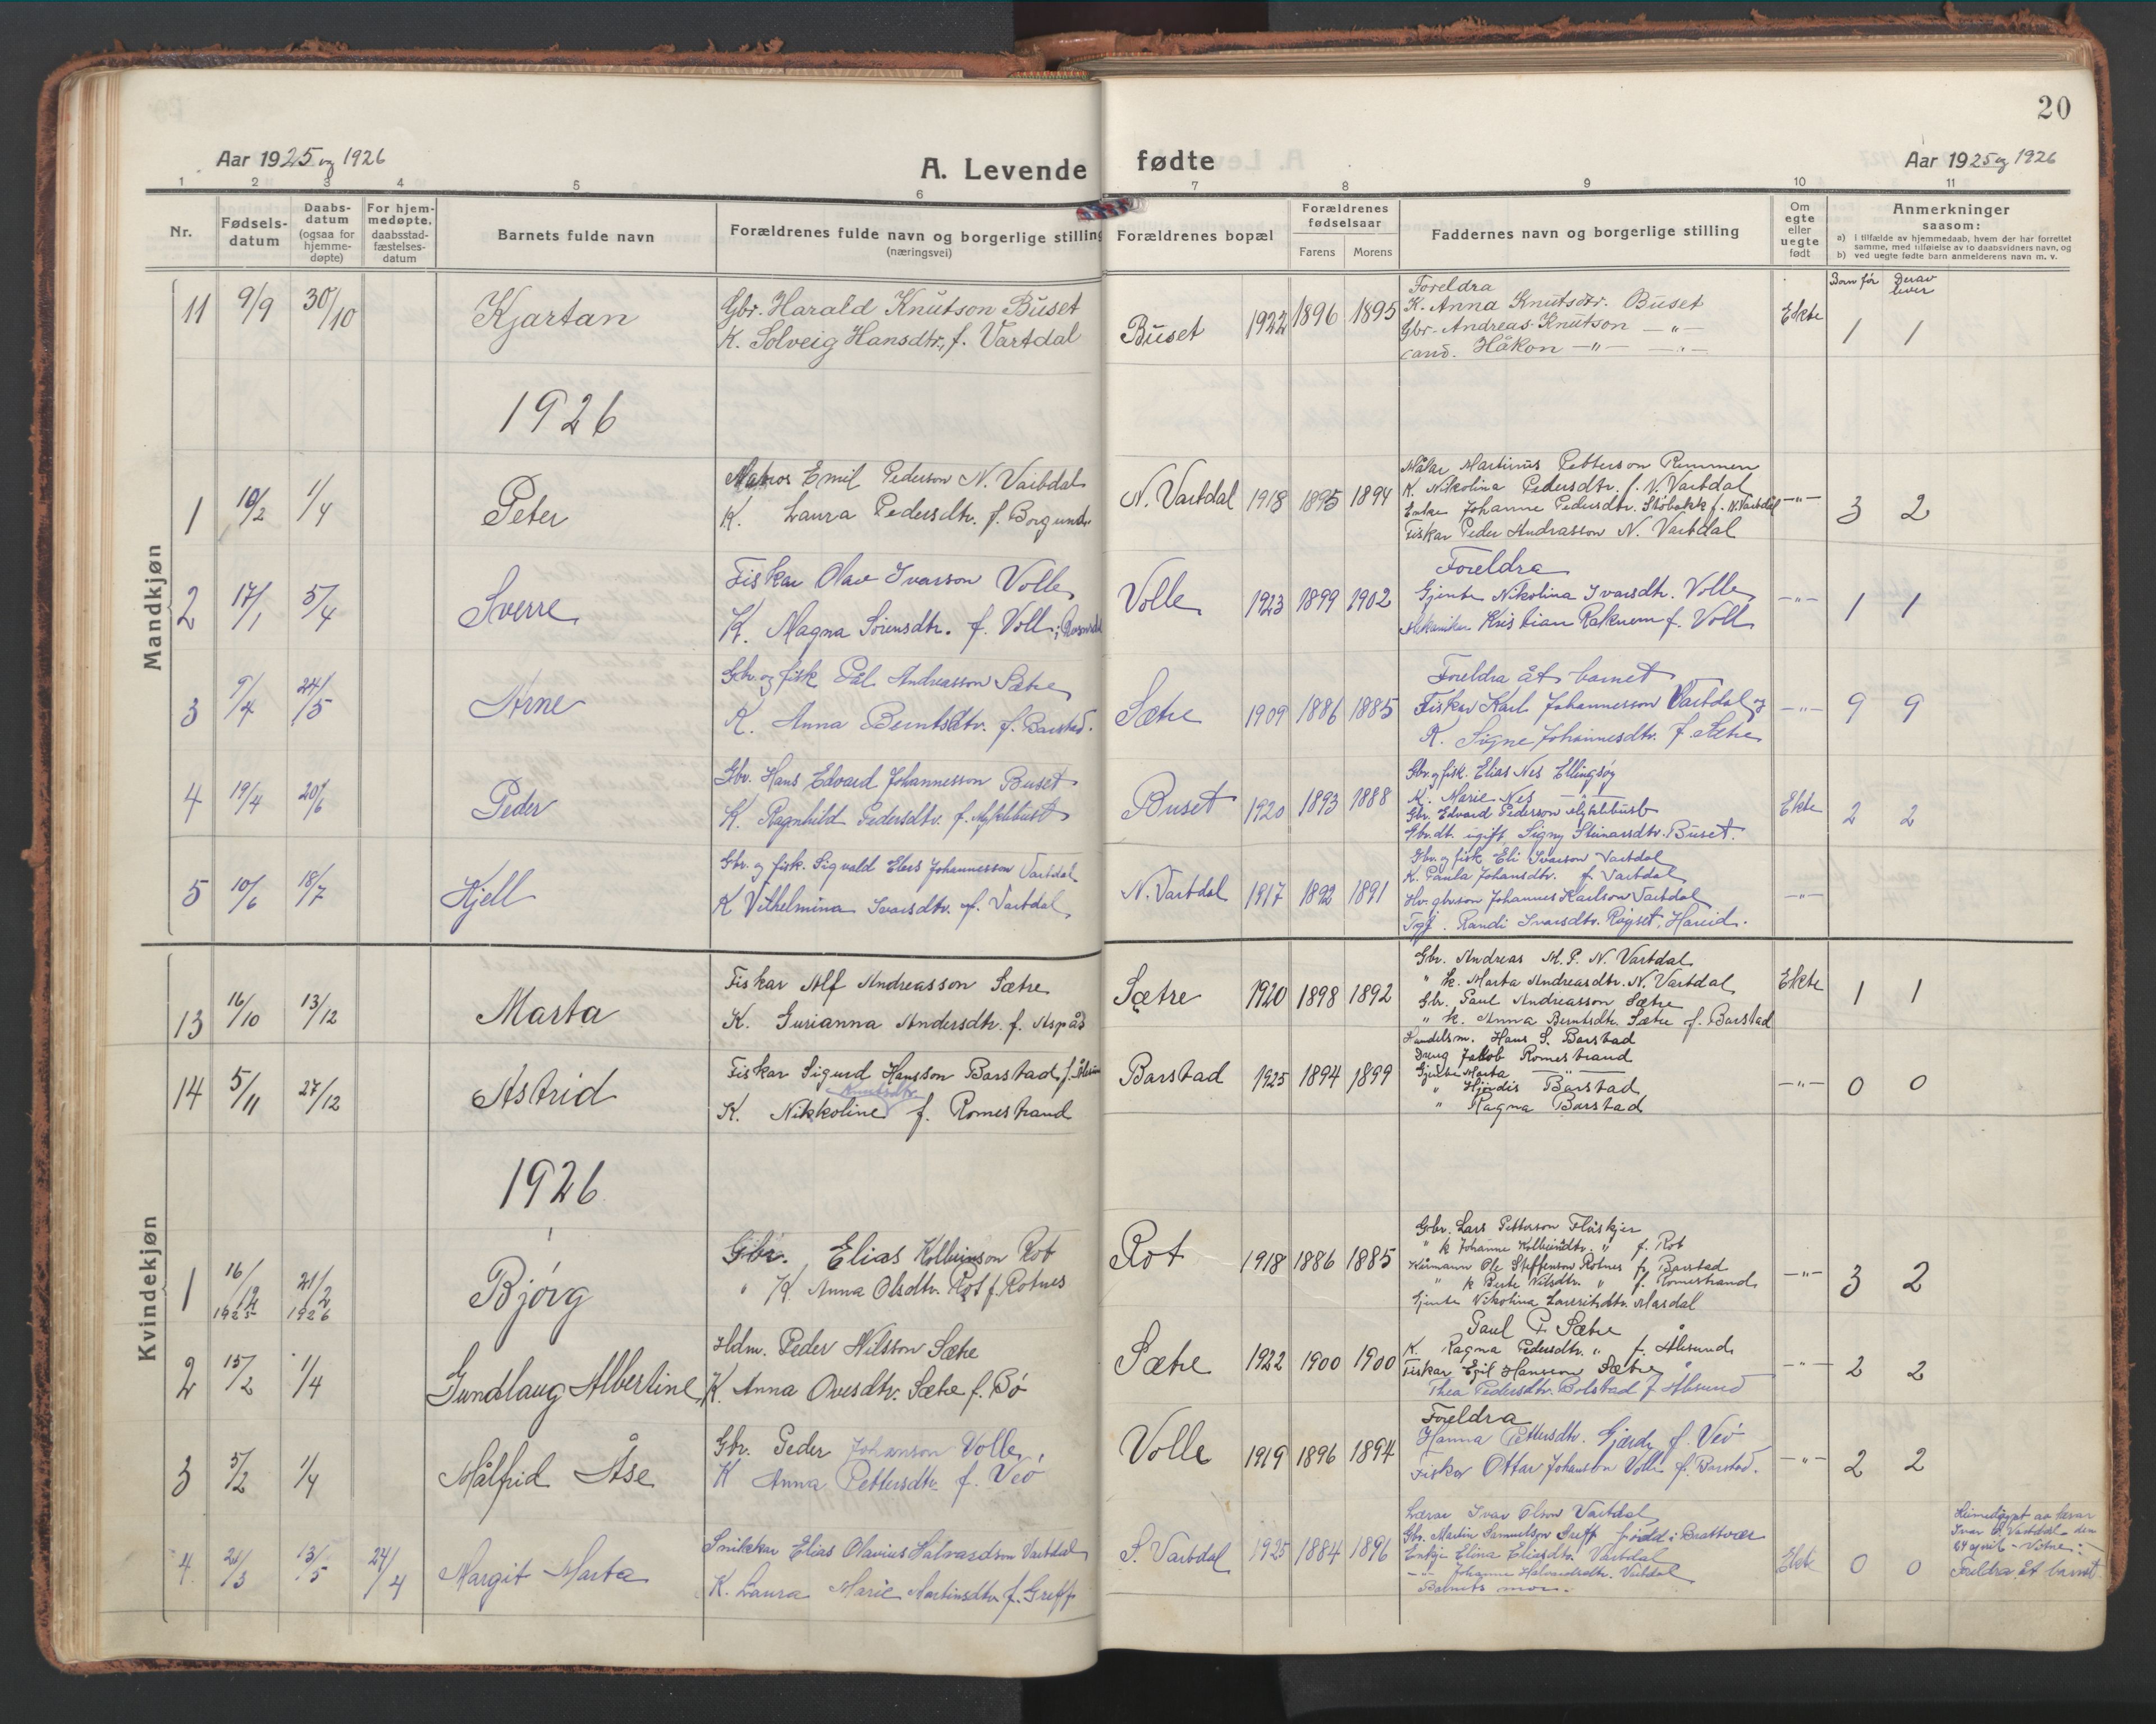 20
Aar 1925 og 1926
A. Levende fødte
Aar 1925 og 1926
1 2 3 4 5 6 7 8 9 10 11
Nr.
Fødsels-datum
Daabs-datum (ogsaa for hjemme-døpte)
For hjem-medøpte. daabsstad-fæstelses-datum
Barnets fulde navn
Forældrenes fulde navn og borgerlige stilling (næringsvei)
Forældrenes bopæl
Forældrenes fødselsaar
Farens Morens
Faddernes navn og borgerlige stilling
Om egte eller uegte født
Anmerkninger saasom:
a) I tilfælde av hjemmedaab, hvem der har forrettet samme, med tilføielse av to daabsvidners navn, og
b) ved uegte fødte barn anmelderens navn m. v.
Born før Derav lever
Mandkjøn
11 9/9 30/10 Kjartan
Gbr. Harald Knutson Buset
K. Solveig Hansdtr. f. Vartdal
Buset 1922 1896 1895
Foreldra
K. Anna Knutsdtr. Buset
Gbr. Andreas Knutson —"—
cand. Håkon —"— —"—
Ekte 1 1
1926
1 10/2 1/4 Peter
Matros Emil Pederson N. Vartdal
K. Laura Pedersdtr. f. Borgund
N. Vartdal 1918 1895 1894
Målar Martinus Petterson Remmen
K. Nikolina Pedersdtr. f. N. Vartdal
Enke Johanne Pedersdtr. Støbakk f. N. Vartdal
Fiskar Peder Andrasson N. Vartdal
—"— 3 2
2 17/1 5/4 Sverre
Fiskar Olav Ivarson Volle
K. Magna Sørensdtr. f. Voll i
Volle 1923 1899 1902
Foreldra
Gjente Nikolina Ivarsdtr. Volle
Mekaniker Kristian Raknem f. Voll
—"— 1 1
3 9/4 24/5 Arne
Gbr. og fisk. Pål Andreasson Sætre
K. Anna Berntsdtr. f. Barstad.
Sætre 1909 1886 1885
Foreldra åt barnet
Fiskar Karl Johannesson Vartdal og
K. Signe Johannesdtr. f. Sætre
—"— 9 9
4 19/4 20/6 Peder
Gbr. Hans Edvard Johannesson Buset
K. Ragnhild Pedersdtr. f. Myklebust
Buset 1920 1893 1888
Gbr. og fisk. Elias Nes Ellingsøy
K. Marie Nes —"—
Gbr. Edvard Pederson Myklebust
Gbr.dt. ugift Signy Steinarsdtr. Buset.
Ekte 2 2
5 10/6 18/7 Kjell
Gbr. og fisk. Sigvald Elias Johannesson Vartdal
K Vilhelmina Ivarsdtr. f. Vartdal
N. Vartdal 1917 1892 1891
Gbr. og fisk. Eli Ivarson Vartdal
K. Paula Johansdtr. f. Vartdal
Johannes Karlson Vartdal
Randi Ivarsdtr. Røyset, Hareid.
—"—
Kvindekjøn
13 16/10 13/12 Marta
Fiskar Alf Andreasson Sætre
K. Gurianna Andersdtr. f. Aspås
Sætre 1920 1898 1892
Gbr. Andreas M. P. N. Vartdal
" k. Marta Andreasdtr. N. Vartdal
Gbr. Paul Andreasson Sætre
" k. Anna Berntsdtr. Sætre f. Barstad
Ekte 1 1
14 5/11 27/12 Astrid
Fiskar Sigurd Hansson Barstad
Knutsdtr.
K. Nikkoline f. Romestrand
Barstad 1925 1894 1899
Handelsm. Hans S. Barstad
Dreng Jakob Romestrand
Gjente Marta —"—
" Hjørdis Barstad
" Ragna Barstad
—"— 0 0
1926
1 16/12 1925 21/2 1926 Bjørg
Gbr. Elias Kolbeinson Rot
" K. Anna Olsdtr. Rot f. Rotnes
Rot 1918 1886 1885
Gbr. Lars Petterson Flåskjer
" k Johanne Kolbeinsdtr. " f. Rot
Kårmann Ole Steffenson Rotnes f. Barstad
" k Berte Nilsdtr. " f. Romestrand
Gjente Nikolina Lauritsdtr. Masdal
—"— 3 2
2 15/2 1/4 Gundlaug Albertine
Hdm. Peder Nilsson Sætre
K Anna Ovesdtr. Sætre f. Bø
Sætre 1922 1900 1900
Paul P. Sætre
K. Ragna Pedersdtr. " f. Ålesund
Fiskar Egil Hansson Sætre
Thea Pedersdtr. Bolstad f. Ålesund
—"— 2 2
3 5/2 1/4 Målfrid Åse
Gbr. Peder Johanson Volle,
K Anna Pettersdtr. f. Veö
Volle 1919 1896 1894
Foreldra
Hanna Pettersdtr. Gjerde f. Veö
Fiskar Ottar Johanson Volle f. Barstad.
—"— 2 2
4 21/3 13/5 24/4 Margit Marta
Snikkar Elias Olavius Halvardson Vartdal
K. Laura Marie Martinsdtr. f. Greff
S. Vartdal 1925 1884 1896
Lærar Ivar Olson Vartdal
Gbr. Martin Samuelson Greff fødd i Brattvær
Enkje Elina Eliasdtr. Vartdal
—"— Johanne Halvardsdtr. Vartdal
Barnets mor.
Ekte 0 0
Heimedøypt av lærar
Ivar O. Vartdal den
24 april – Vitne:
Foreldra åt barnet